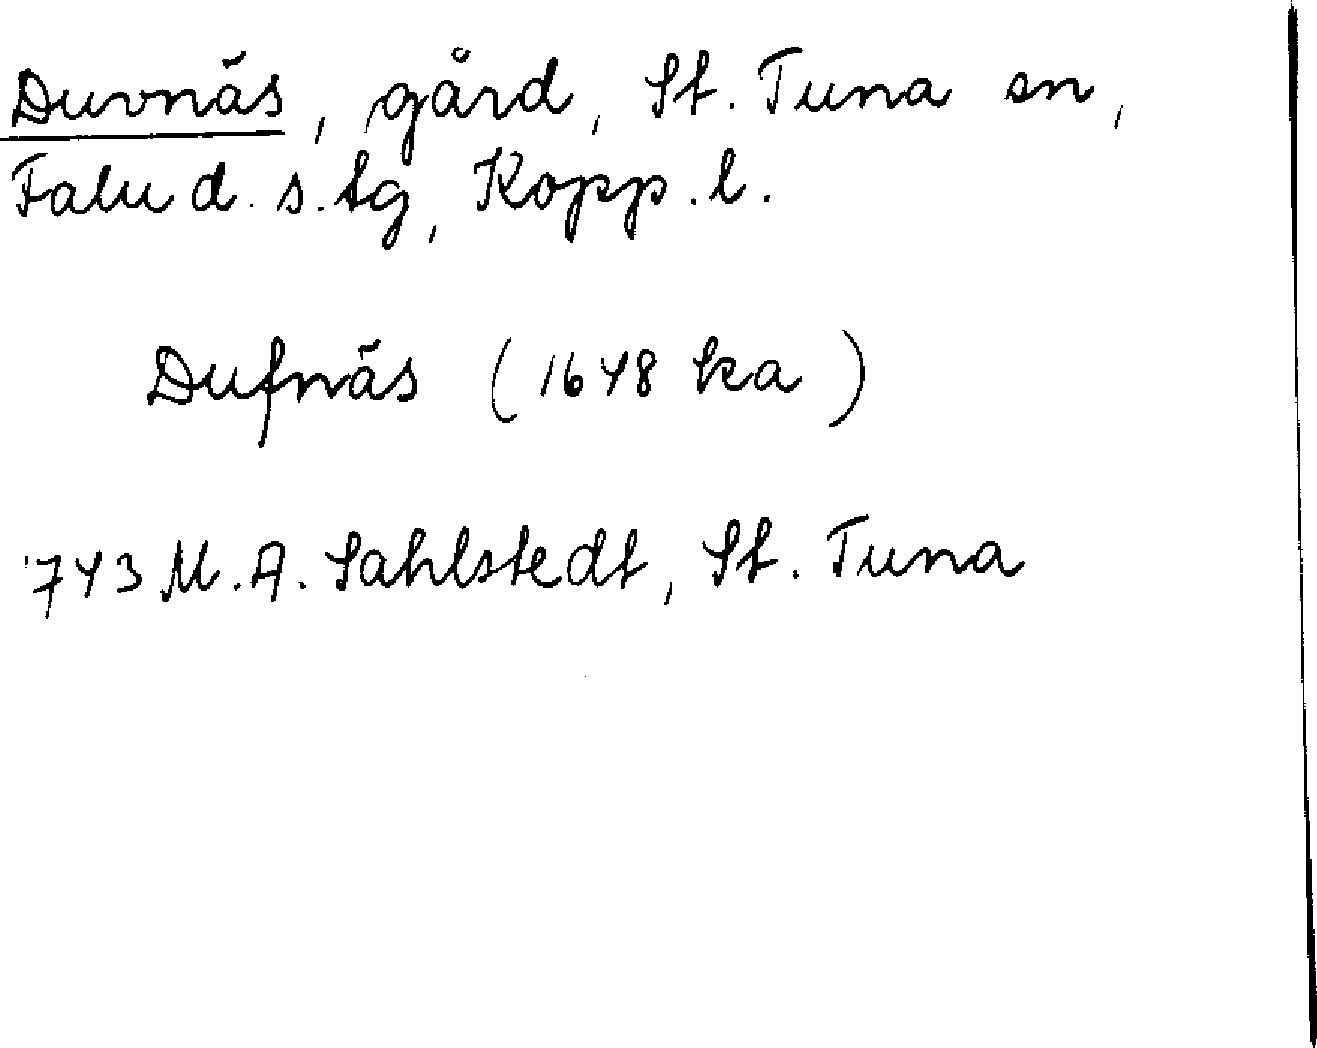 Duvnäs, gård, St. Tuna sn,
Falu d. s. tg, Kopp. l.
Dufnäs (1648 ka)
1743 M. A. Sahlstedt, St. Tuna